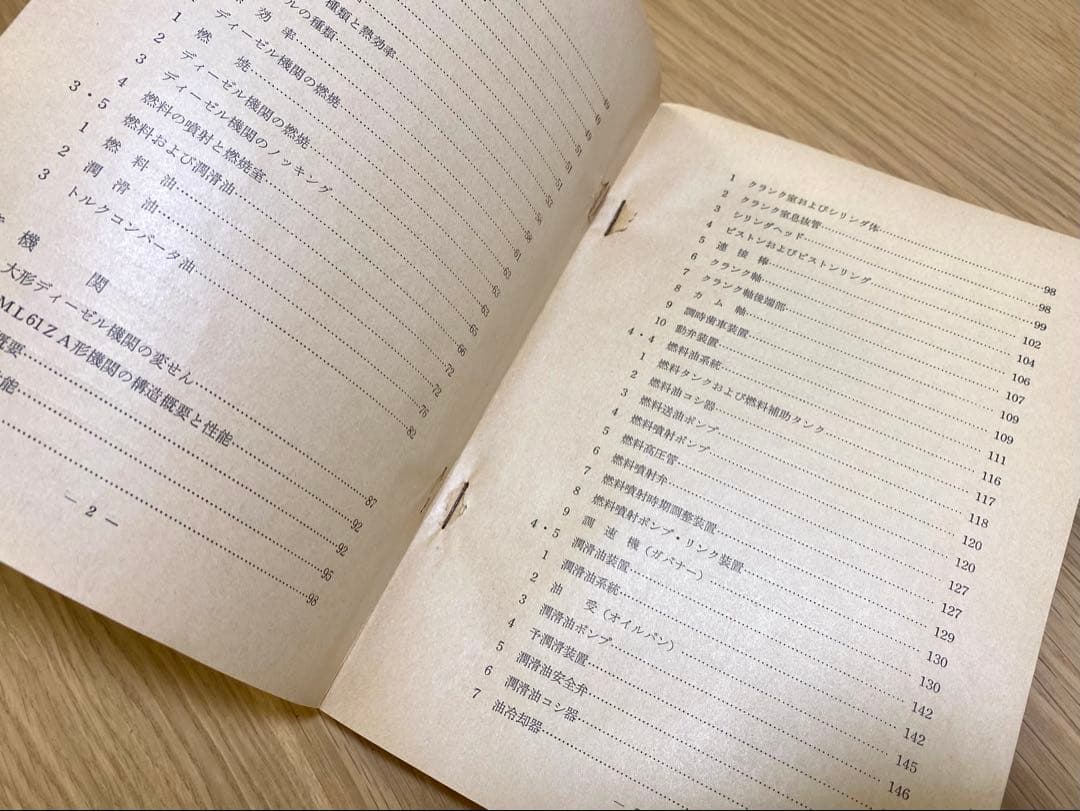 種類と熱効率
ルの種類
効 率
ディーゼル機関の燃焼
1 燃 焼
2 ディーゼル機関の燃焼
3 ディーゼル機関のノッキング
4 燃料の噴射と燃焼室
3・5 燃料および潤滑油
1 燃 料 油
2 潤 滑 油
3 トルクコンバータ油
機 関
大形ディーゼル機関の変せん 82
ML61ZA形機関の構造概要と性能 87
概要 92
性能 92
95
98
― 2 ―
1 クランク室およびシリンダ体 98
2 クランク室息抜管 98
3 シリンダヘッド 99
4 ピストンおよびピストンリング 102
5 連 接 棒 104
6 クランク軸 106
7 クランク軸後端部 107
8 カ ム 軸 109
9 調時歯車装置 109
10 動弁装置 111
4・4 燃料油系統 116
1 燃料タンクおよび燃料補助タンク 117
2 燃料油コシ器 118
3 燃料送油ポンプ 120
4 燃料噴射ポンプ 120
5 燃料高圧管 127
6 燃料噴射弁 127
7 燃料噴射時期調整装置 129
8 燃料噴射ポンプ・リンク装置 130
9 調 速 機（ガバナー） 130
4・5 潤滑油装置 142
1 潤滑油系統 142
2 油 受（オイルパン） 145
3 潤滑油ポンプ 146
4 予潤滑装置
5 潤滑油安全弁
6 潤滑油コシ器
7 油冷却器